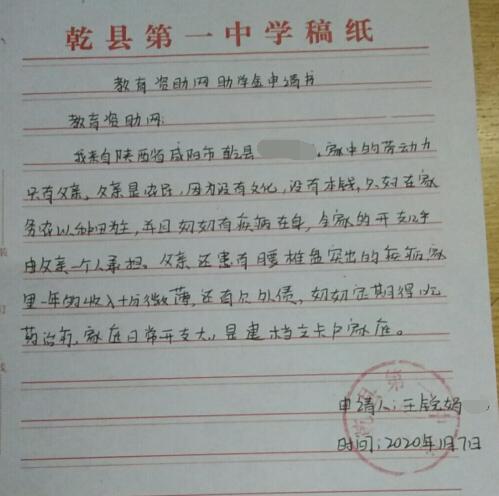 乾县第一中学稿纸
教育资助网助学金申请书
教育资助网:
我来自陕西省咸阳市乾县 ，家中的劳动力
只有父亲。父亲是农民，因为没有文化，没有本钱，只好在家
务农以种田为生，并且妈妈有疾病在身，全家的开支几乎
由父亲一个人承担。父亲还患有腰椎盘突出的疾病，家
里一年的收入十分微薄，还有欠外债，妈妈定期得吃
药治病，家庭日常开支大，是建档立卡户家庭。
申请人:王 娟
时间:2020年1月7日
乾县第一中